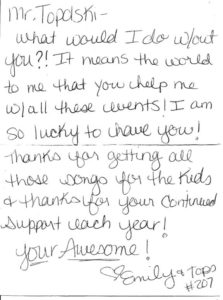 Mr. Topolski-
What would I do w/out
you?! It means the world
to me that you help me
w/all these events! I am
so lucky to have you!
Thanks for getting all
those songs for the kids
& thanks for your continued
support each year!
Your Awesome!
Emily & Tops
#207